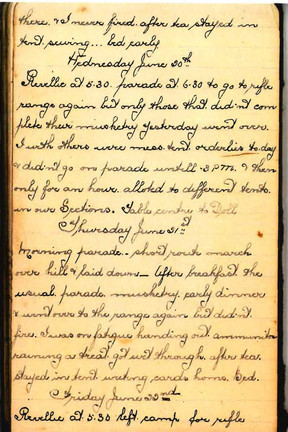 there. & I never fired. after tea. stayed in
tent. sewing... bed early
Wednesday June 20th
Reveille at 5.30. parade at 6.30 to go to rifle
range again but only those that didn't com
plete their musketry yesterday went over.
I with others were mess. tent orderlies to.day
& did'nt go on parade untill. 3 P.M. & then
only for an hour. alloted to different tents.
in our Sections. Table
Thursday June 21st
Morning parade. short route march
over hill & laid down_ After breakfast the
usual parade musketry. early dinner
& went over to the range again but did'nt
fire. I was on fatigue handing out ammuniton
raining a treat got wet through. after tea.
stayed in tent writing cards home. Bed.
Friday June 22nd
Reveille at 5.30 left camp for rifle